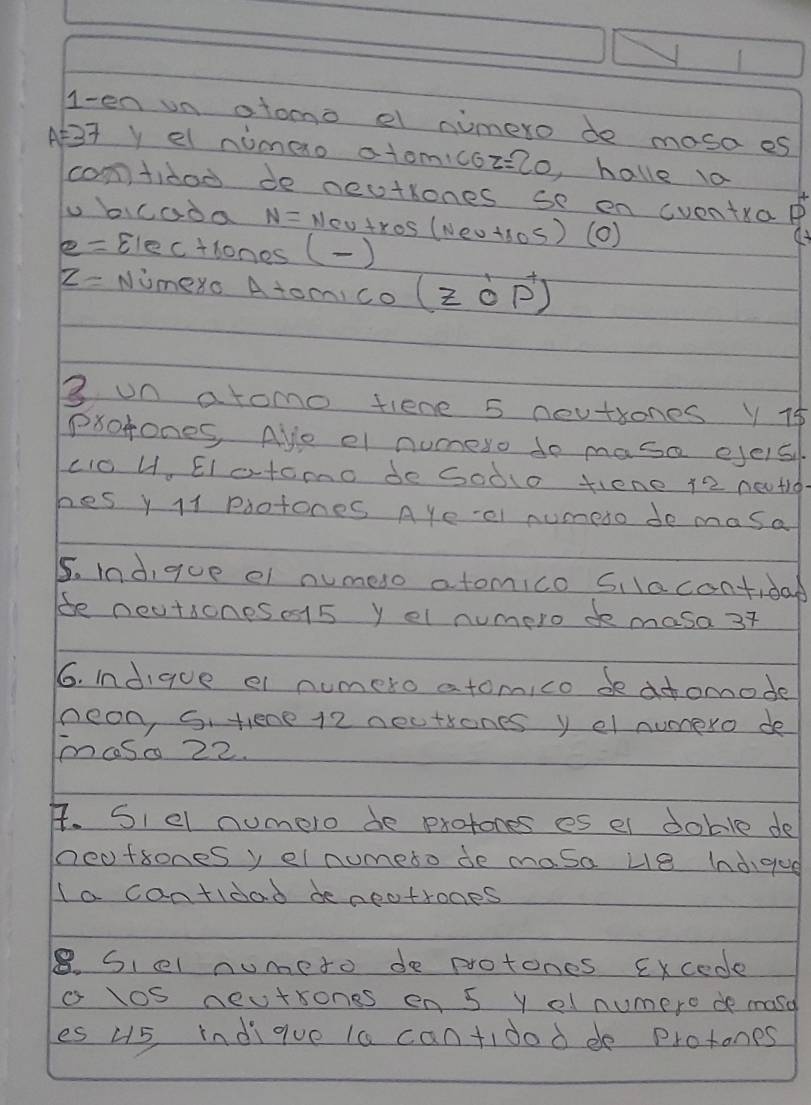 1-en un atomo el número de masa es
A=37 y el número atomico z=20, halle la
cantidad de neutrones se en cuentra p+
ubicada N=Neutros (Neutros) (0)
e=Electrones (-)
Z=Número Atomico (z ó p+)
3 un atomo tiene 5 neutrones y 15
protones, Aye el numero de masa ejersi
cio 4. El atomo de Sodio tiene 12 neutro-
nes y 11 protones Aye el numero de masa
5. indique el numero atomico Si la cantidad
de neutrones es 15 y el numero de masa 37
6. indique el numero atomico de atomo de
neon, Si tiene 12 neutrones y el numero de
masa 22.
7. Si el numero de protones es el doble de
neutrones y el numero de masa 48 indique
la cantidad de neutrones
8. Si el numero de protones Excede
a los neutrones en 5 y el numero de masa
es 45 indique la cantidad de Protones